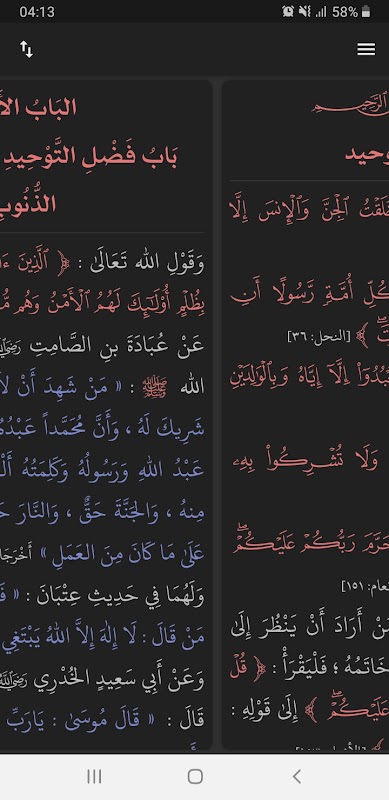 04:13
58%
وحيد
خَلَقْتُ ٱلْجِنَّ وَٱلْإِنسَ إِلَّا
كُلِّ أُمَّةٍ رَّسُولًا أَنِ
[النحل: ٣٦]
إِلَّآ إِيَّاهُ وَبِٱلْوَٰلِدَيْنِ
وَلَا تُشْرِكُوا۟ بِهِۦ
حَرَّمَ رَبُّكُمْ عَلَيْكُمْ ۖ
١٥١]
مَنْ أَرَادَ أَنْ يَنْظُرَ إِلَىٰ
خَاتَمُهُ ؛ فَلْيَقْرَأْ : ﴿ قُلْ
عَلَيْكُمْ ۖ ﴾ إِلَىٰ قَوْلِهِ :
البَابُ
بَابُ فَضْلِ التَّوْحِيدِ
الذُّنُوبِ
وَقَوْلِ الله تَعَالَىٰ : ﴿ ٱلَّذِينَ
بِظُلْمٍ أُو۟لَٰٓئِكَ لَهُمُ ٱلْأَمْنُ وَهُم
عَنْ عُبَادَةَ بنِ الصَّامِتِ
الله ﷺ : « مَنْ شَهِدَ أَنْ لَا
شَرِيكَ لَهُ ، وَأَنَّ مُحَمَّداً عَبْدُهُ
عَبْدُ اللهِ وَرَسُولُهُ وَكَلِمَتُهُ
مِنهُ ، وَالجَنَّةَ حَقٌّ ، وَالنَّارَ
عَلَىٰ مَا كَانَ مِنَ العَمَلِ »
وَلَهُمَا فِي حَدِيثِ عِتْبَانَ : «
مَنْ قَالَ : لَا إِلَهَ إِلَّا اللهُ يَبْتَغِي
وَعَنْ أَبِي سَعِيدٍ الخُدْرِي
قَالَ : « قَالَ مُوسَىٰ : يَارَبِّ